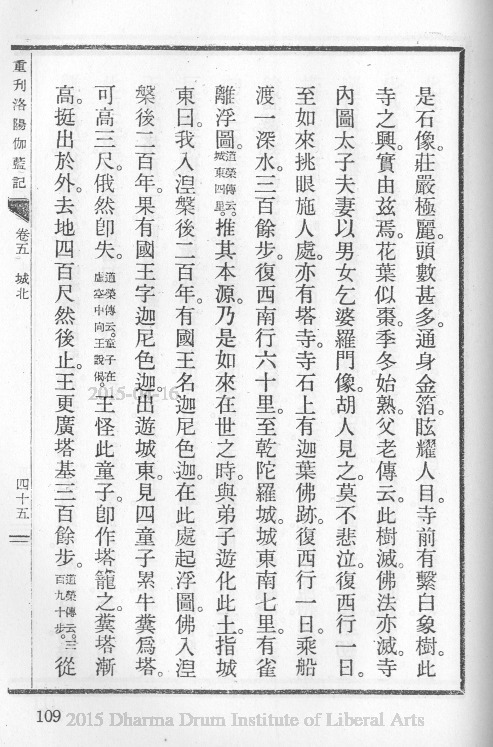 是石像。莊嚴極麗。頭數甚多。通身金箔。眩耀人目。寺前有繫白象樹。此
寺之興。實由茲焉。花葉似棗。季冬始熟。父老傳云。此樹滅。佛法亦滅。寺
內圖太子夫妻以男女乞婆羅門像。胡人見之。莫不悲泣。復西行一日。
至如來挑眼施人處。亦有塔寺。寺石上有迦葉佛跡。復西行一日。乘船
渡一深水。三百餘步。復西南行六十里。至乾陀羅城。城東南七里。有雀
離浮圖。道榮傳云。城東四里。推其本源。乃是如來在世之時。與弟子遊化此土。指城
東曰。我入涅槃後二百年。有國王名迦尼色迦。在此處起浮圖。佛入涅
槃後二百年。果有國王字迦尼色迦。出遊城東。見四童子累牛糞爲塔。
可高三尺。俄然卽失。道榮傳云。童子在虛空中向王說偈。王怪此童子。卽作塔籠之。糞塔漸
高。挺出於外。去地四百尺然後止。王更廣塔基三百餘步。道榮傳云。三百九十步。從
重刊洛陽伽藍記
卷五 城北
四十五
109
2015 Dharma Drum Institute of Liberal Arts